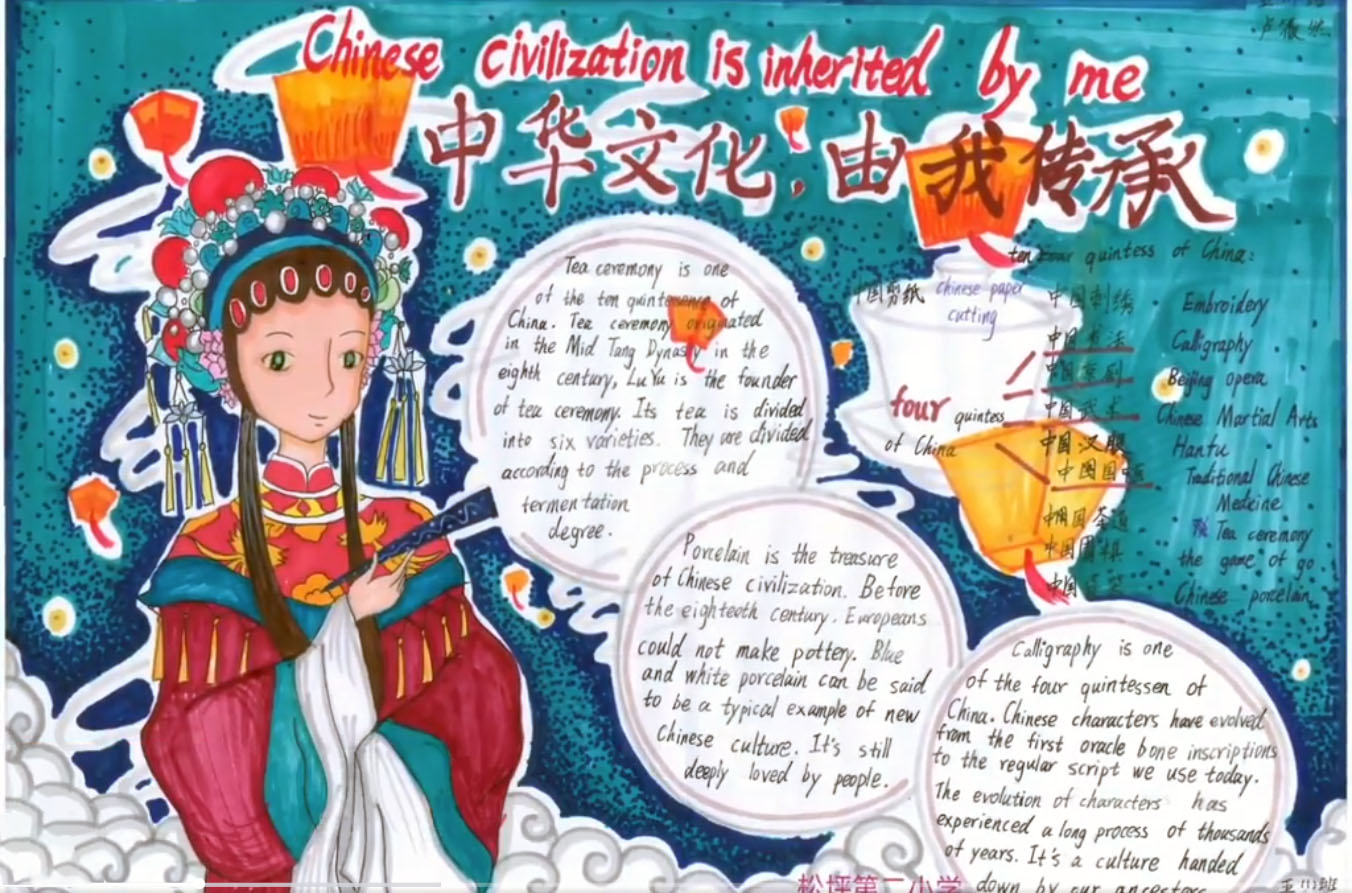 Chinese civilization is inherited by me
中华文化，由我传承
Tea ceremony is one
of the ten quintessence of
China. Tea ceremony originated
in the Mid Tang Dynasty in the
eighth century, Lu Yu is the founder
of tea ceremony. Its tea is divided
into six varieties. They are divided
according to the process and
fermentation
degree.
Porcelain is the treasure
of Chinese civilization. Before
the eighteeth century. Europeans
could not make pottery. Blue
and white porcelain can be said
to be a typical example of new
Chinese culture. It's still
deeply loved by people.
ten four quintess of China:
中国剪纸 chinese paper
cutting
中国刺绣 Embroidery
中国书法 Calligraphy
中国京剧 Beijing opera
中国武术 Chinese Martial Arts
four quintess
of China
中国汉服 Hanfu
中国国医 Traditional Chinese
Medicine
中国茶道 Tea ceremony
中国围棋 the game of go
中国 Chinese porcelain
Calligraphy is one
of the four quintessen of
China. Chinese characters have evolved
from the first oracle bone inscriptions
to the regular script we use today.
The evolution of characters has
experienced a long process of thousands
of years. It's a culture handed
down by our ancestors
松坪第二小学